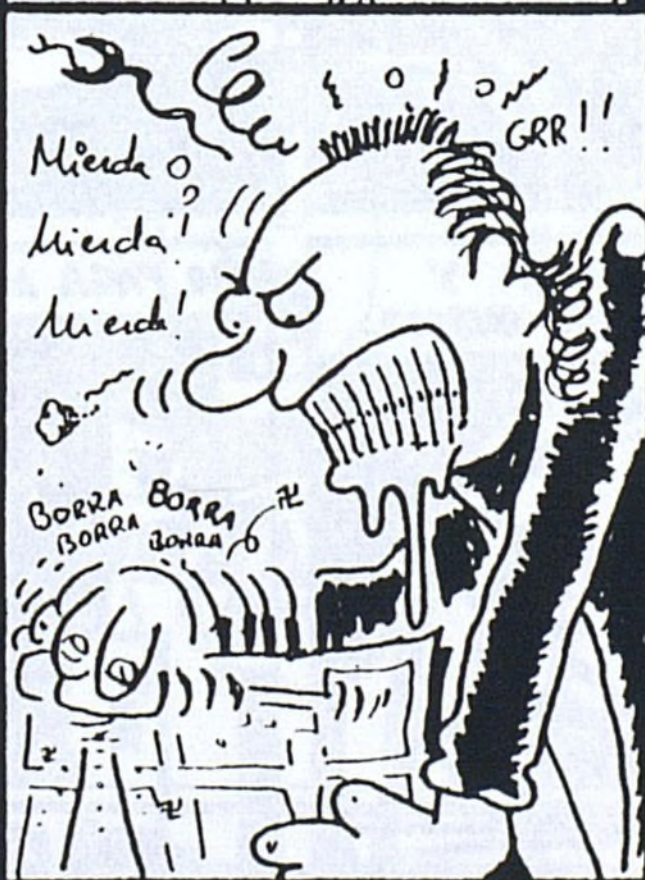 GRR!!
Mierda
Mierda!
Mierda!
BORRA BORRA
BORRA BORRA